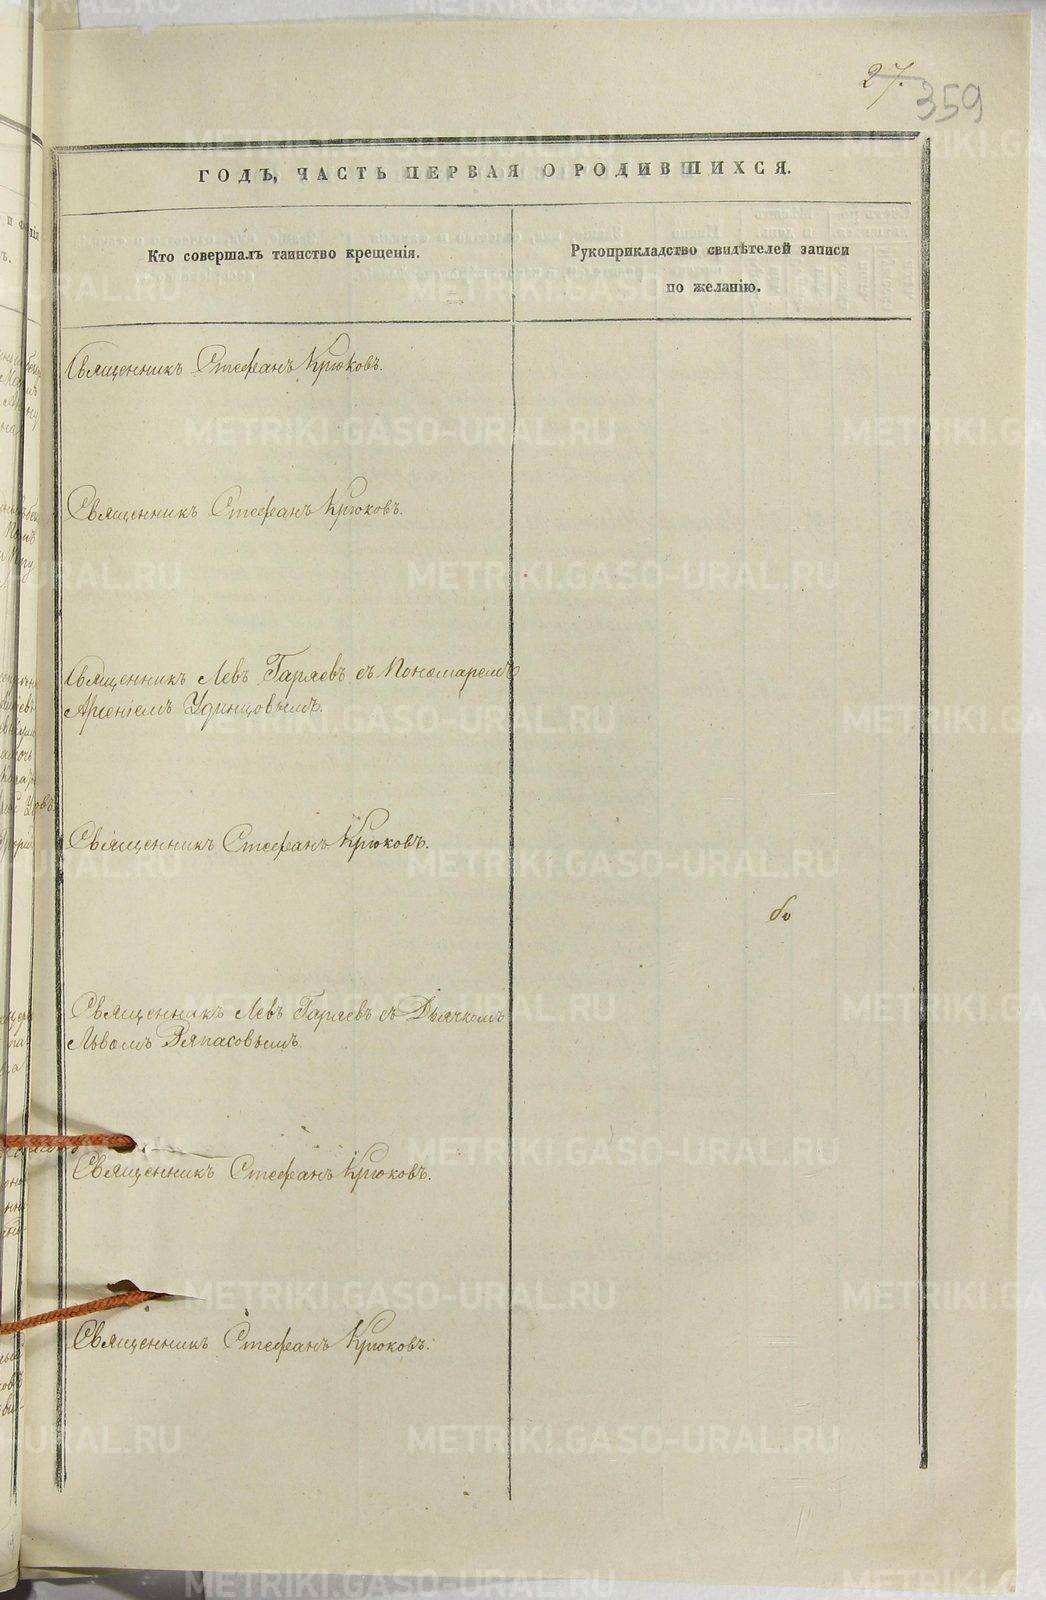 27.
359
ГОДЪ, ЧАСТЬ ПЕРВАЯ О РОДИВШИХСЯ.
Кто совершалъ таинство крещенія.
Рукоприкладство свидѣтелей записи
по желанію.
Священникъ Стефанъ Крюковъ.
Священникъ Стефанъ Крюковъ.
Священникъ Левъ Гаряевъ съ Пономаремъ
Арсеніемъ Удинцовымъ.
Священникъ Стефанъ Крюковъ.
Священникъ Левъ Гаряевъ съ Дьячкомъ
Львомъ Ряпасовымъ.
Священникъ Стефанъ Крюковъ.
Священникъ Стефанъ Крюковъ.
METRIKI.GASO-URAL.RU